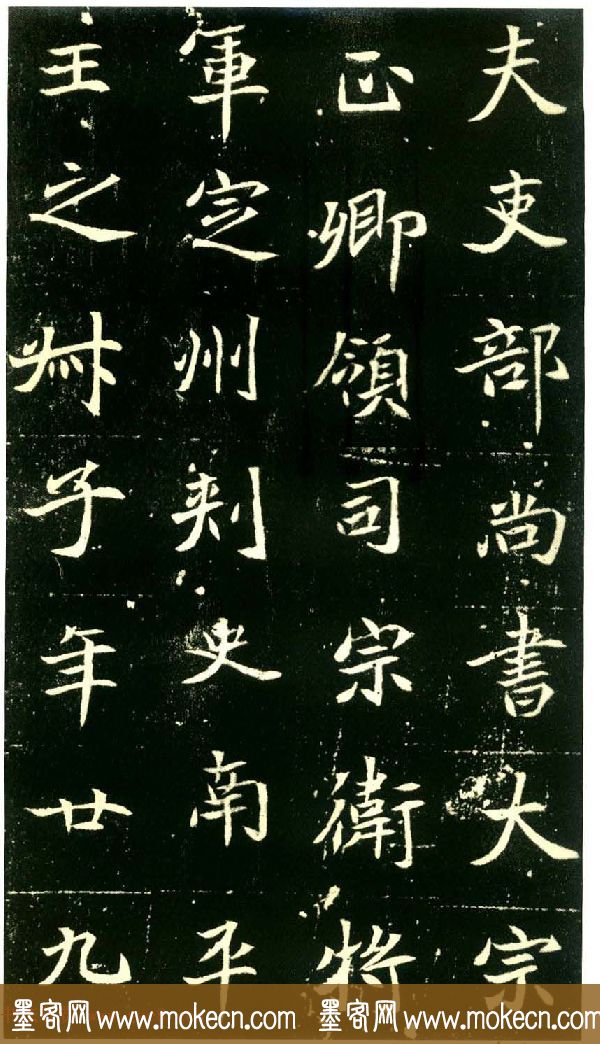 夫吏部尚書大宗
正卿領司宗衛將
軍定州刾史南平
王之弟子年廿九
墨客网 www.mokecn.com 墨客网 www.mokecn.com